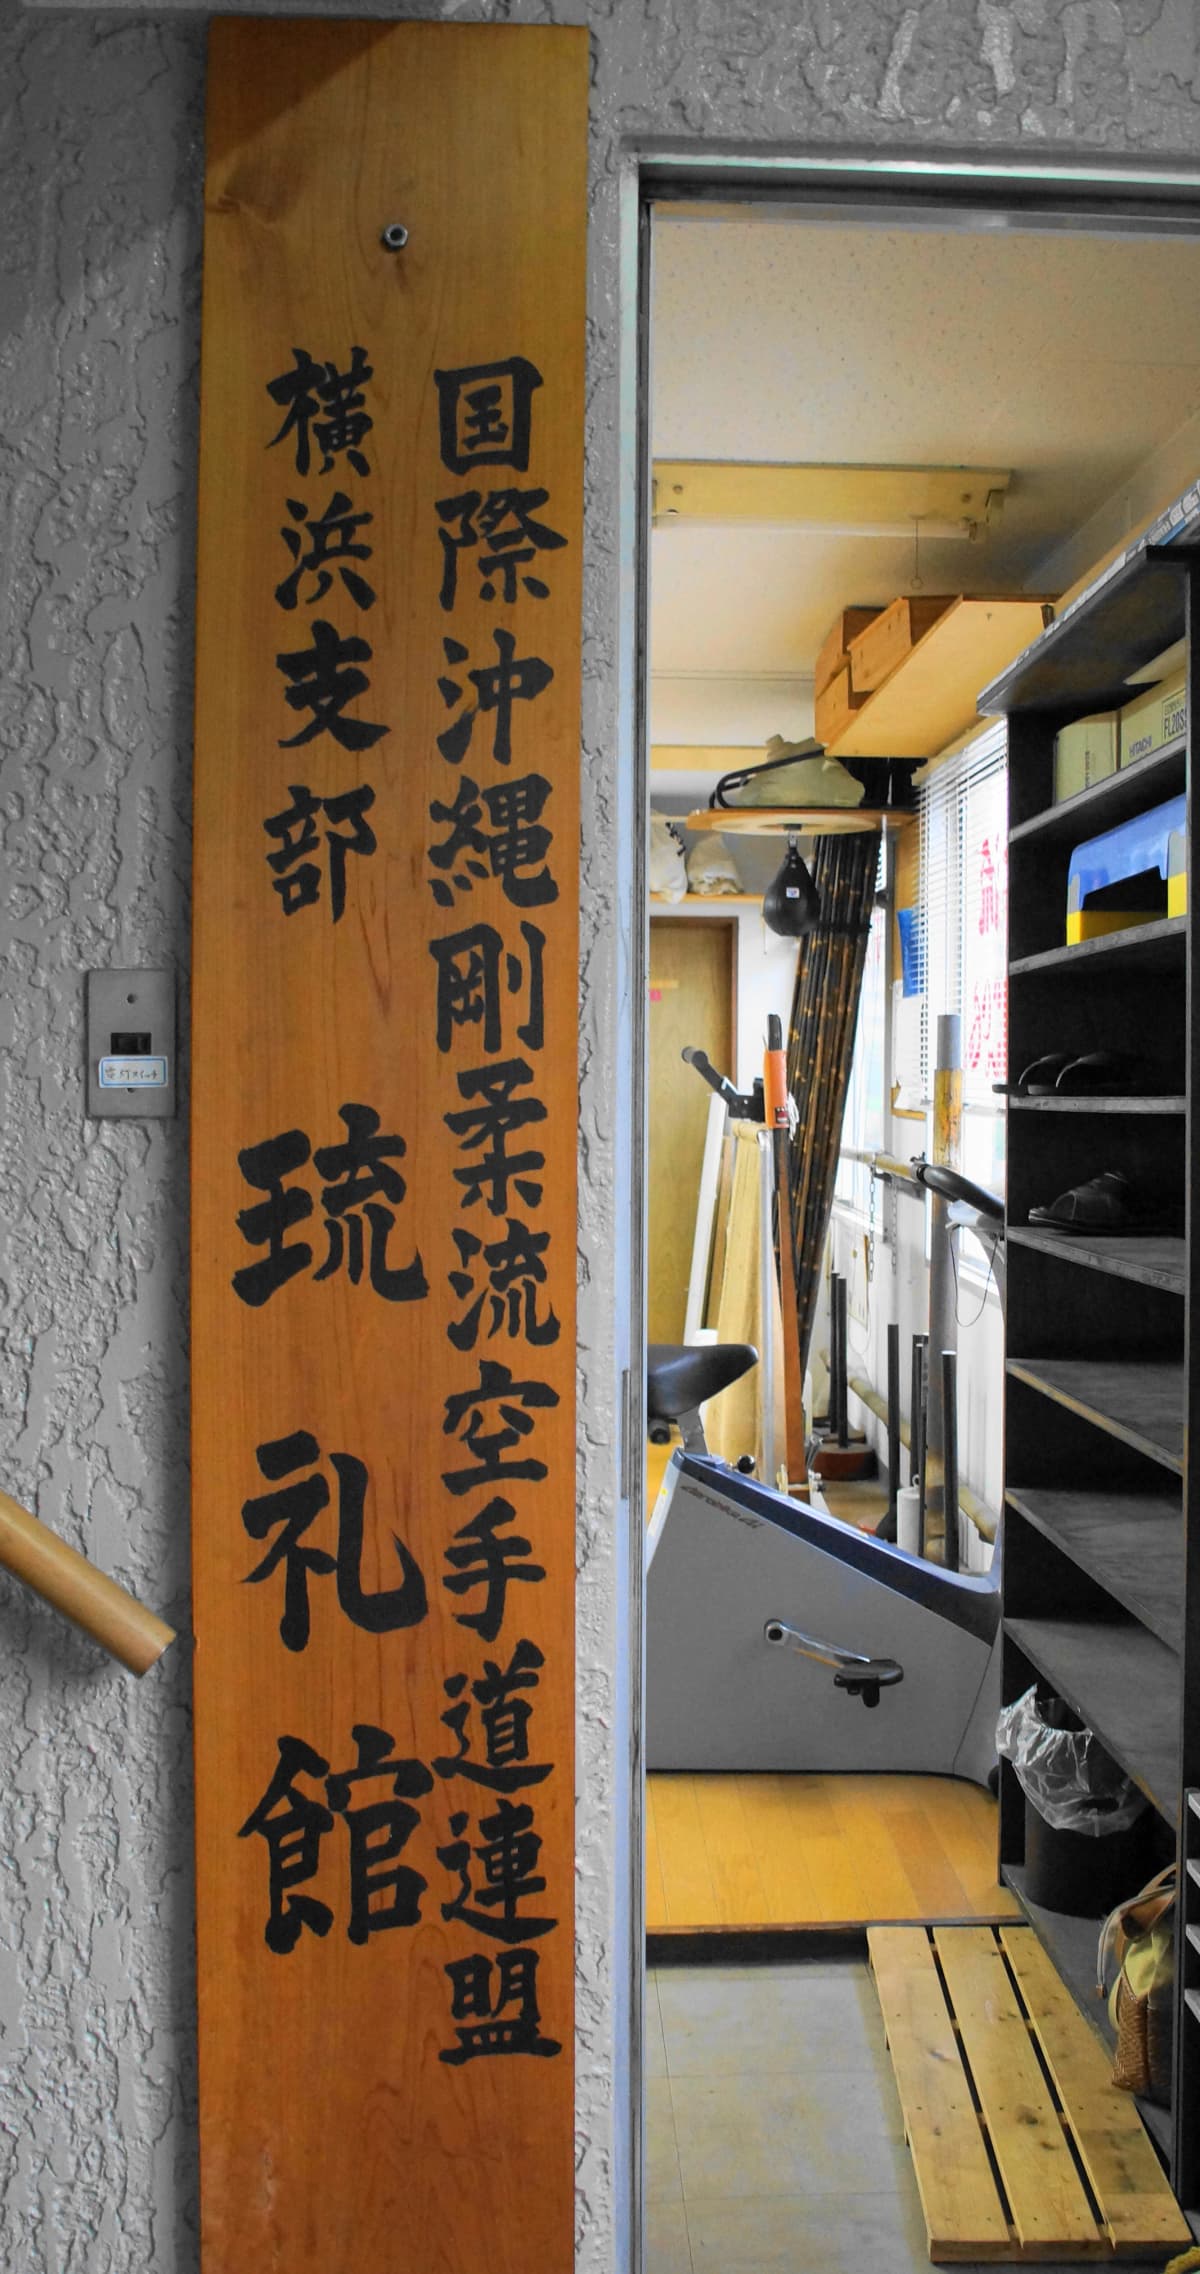 国際沖縄剛柔流空手道連盟
横浜支部 琉礼館
HITACHI